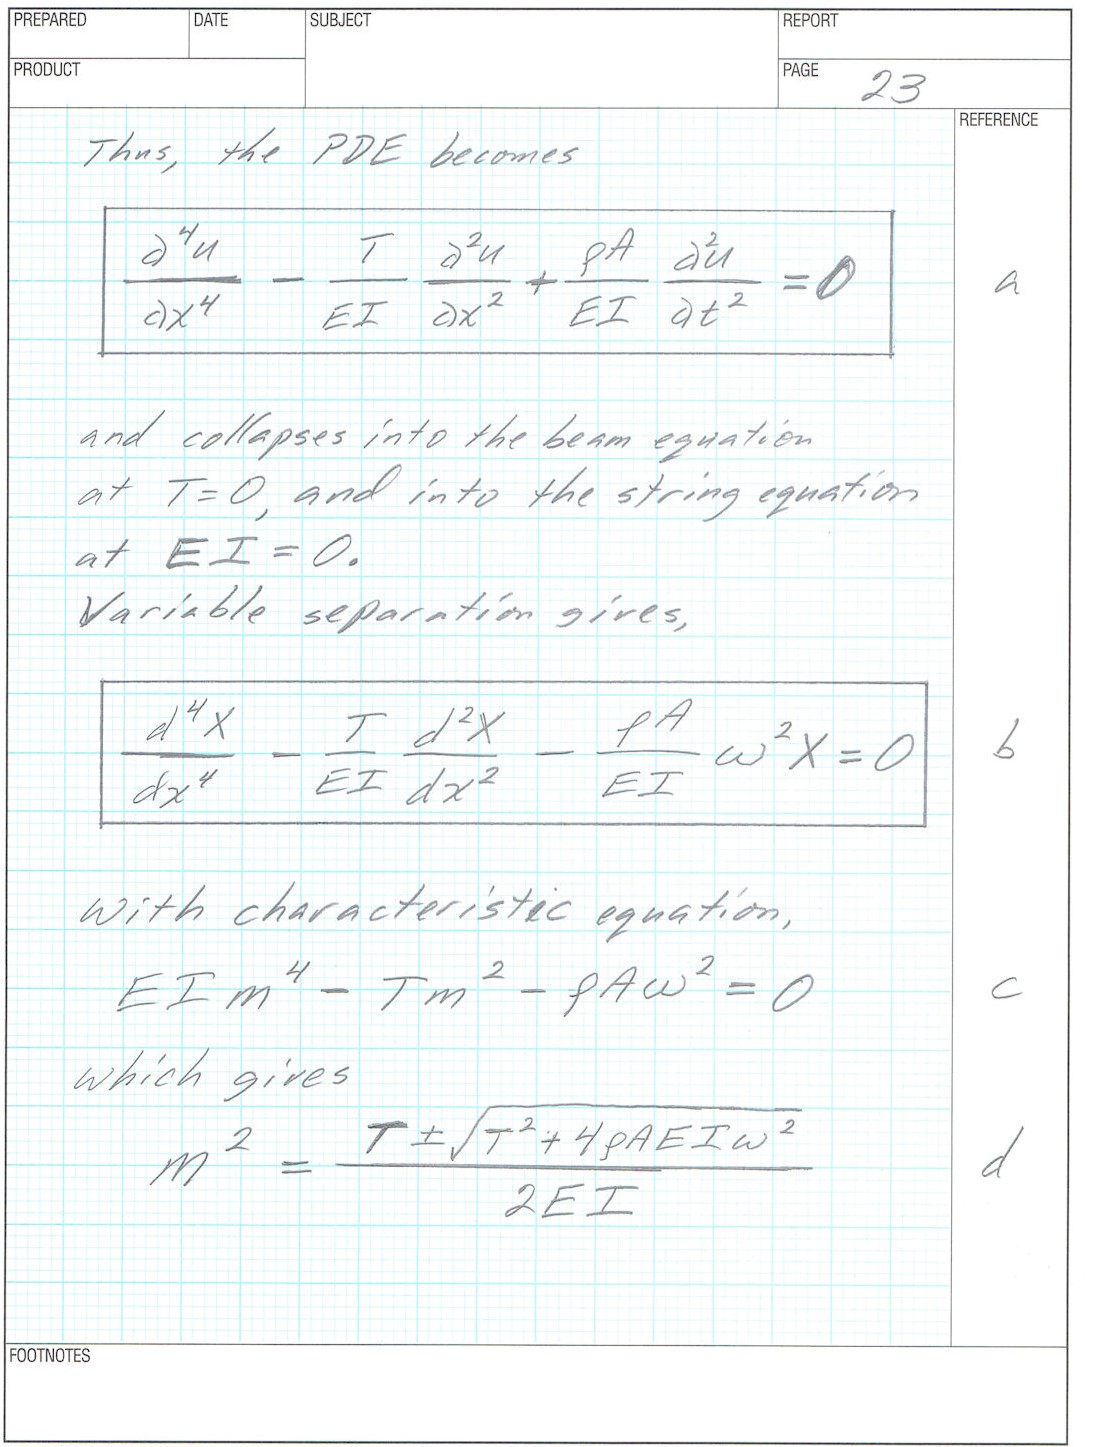 PREPARED DATE SUBJECT REPORT
PRODUCT PAGE 23
REFERENCE
Thus, the PDE becomes
∂⁴u/∂x⁴ - T/EI ∂²u/∂x² + ρA/EI ∂²u/∂t² = 0 a
and collapses into the beam equation
at T=0, and into the string equation
at EI = 0.
Variable separation gives,
d⁴X/dx⁴ - T/EI d²X/dx² - ρA/EI ω²X = 0 b
with characteristic equation,
EIm⁴ - Tm² - ρAω² = 0 c
which gives
m² = (T ± √(T² + 4ρAEIω²))/2EI d
FOOTNOTES